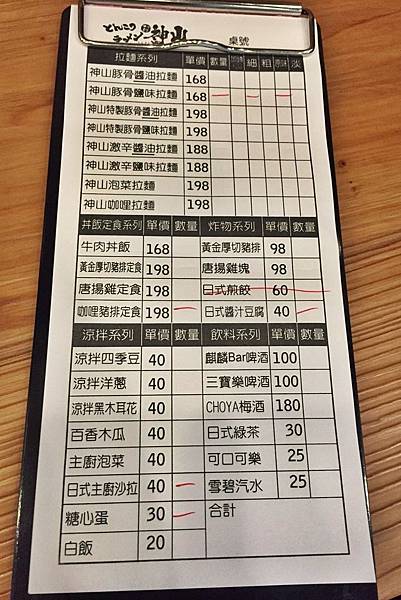 とんこつ
ラーメン 神山
桌號
拉麵系列 單價 數量 細 粗 淡
神山豚骨醬油拉麵 168
神山豚骨鹽味拉麵 168
神山特製豚骨醬油拉麵 198
神山特製豚骨鹽味拉麵 198
神山激辛醬油拉麵 188
神山激辛鹽味拉麵 188
神山泡菜拉麵 198
神山咖哩拉麵 198
丼飯定食系列 單價 數量 炸物系列 單價 數量
牛肉丼飯 168 黃金厚切豬排 98
黃金厚切豬排定食 198 唐揚雞塊 98
唐揚雞定食 198 日式煎餃 60
咖哩豬排定食 198 日式醬汁豆腐 40
涼拌系列 單價 數量 飲料系列 單價 數量
涼拌四季豆 40 麒麟Bar啤酒 100
涼拌洋蔥 40 三寶樂啤酒 100
涼拌黑木耳花 40 CHOYA梅酒 180
百香木瓜 40 日式綠茶 30
主廚泡菜 40 可口可樂 25
日式主廚沙拉 40 雪碧汽水 25
糖心蛋 30 合計
白飯 20